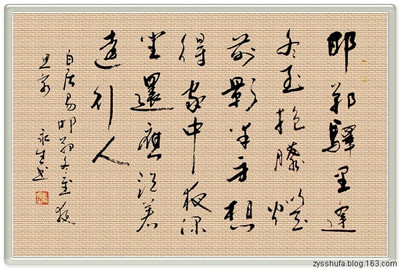 邯鄲驛里逢
冬至抱膝燈
前影伴身想
得家中夜深
坐還應說着
遠行人
白居易邯鄲冬至夜
思家
永生书
zysshufa.blog.163.com